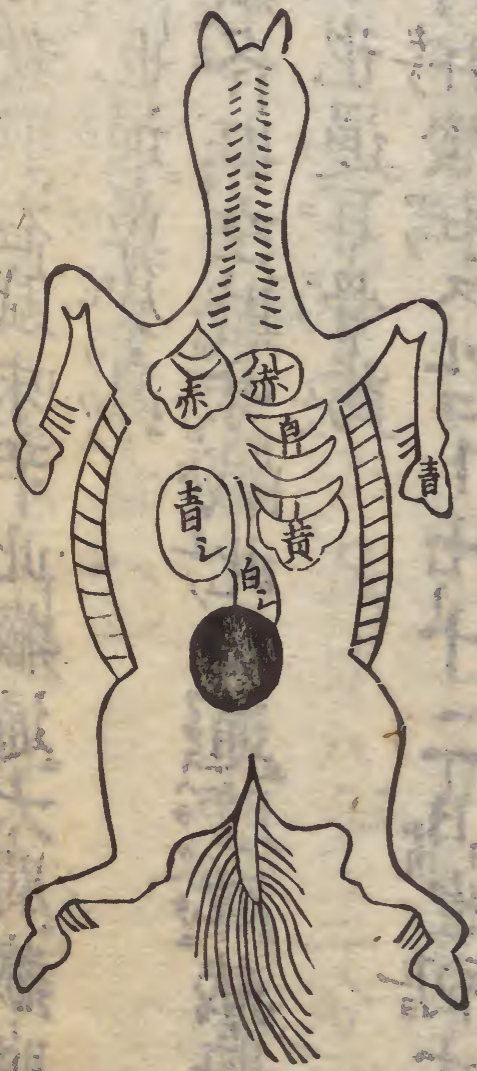 赤
赤
白
青
青シ
黄
白シ